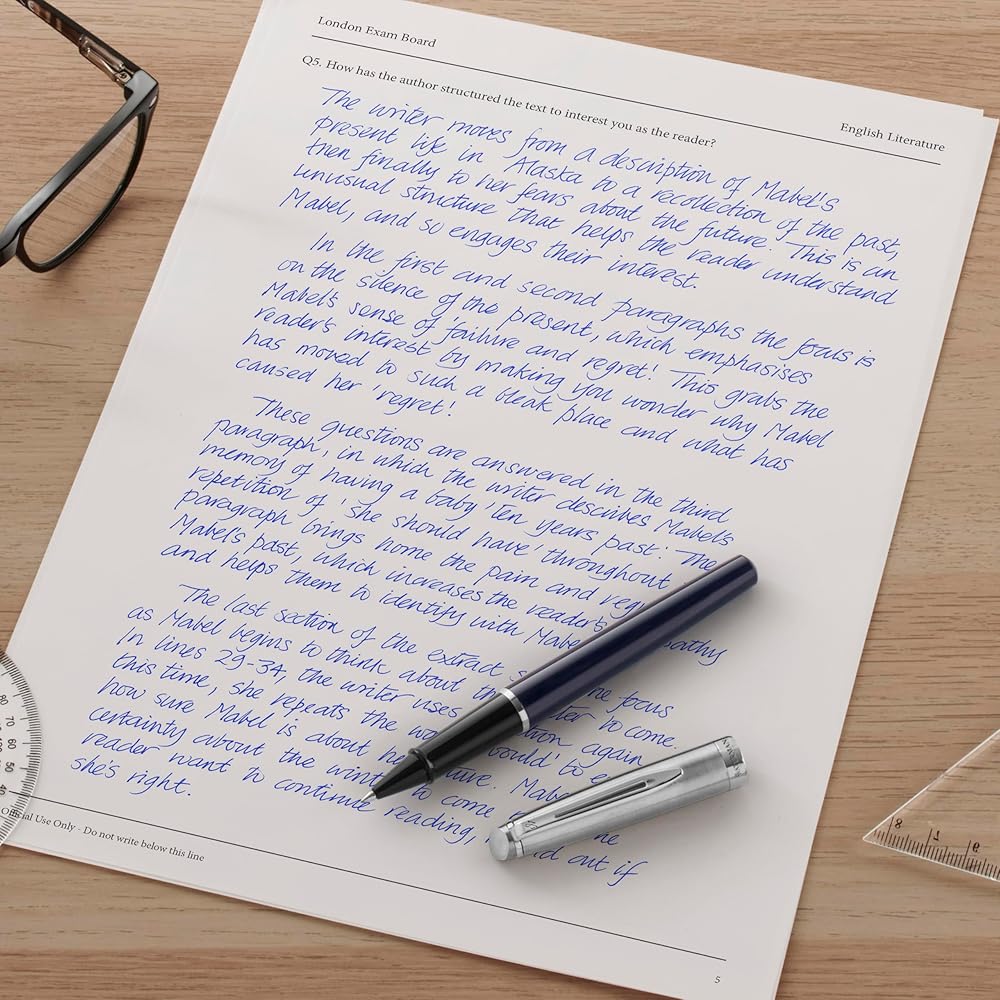 London Exam Board
English Literature
Q5. How has the author structured the text to interest you as the reader?
The writer moves from a description of Mabel's
present life in Alaska to a recollection of the past,
then finally to her fears about the future. This is an
unusual structure that helps the reader understand
Mabel, and so engages their interest.
In the first and second paragraphs the focus is
on the silence of the present, which emphasises
Mabel's sense of failure and regret! This grabs the
reader's interest by making you wonder why Mabel
has moved to such a bleak place and what has
caused her 'regret!
These questions are answered in the third
paragraph, in which the writer describes Mabel's
memory of having a baby 'ten years past'. The
repetition of 'she should have' throughout
paragraph brings home the pain and
Mabel's past, which increases the reader's
and helps them to identify with
The last section of the extract focus
as Mabel begins to think about to come.
In lines 29-34, the writer uses again
this time, she repeats the would' to
how sure Mabel is about
certainty about the to come
reader want to continue reading, out if
she's right.
Official Use Only - Do not write below this line
5
80
70
60
50
40
8
7
6